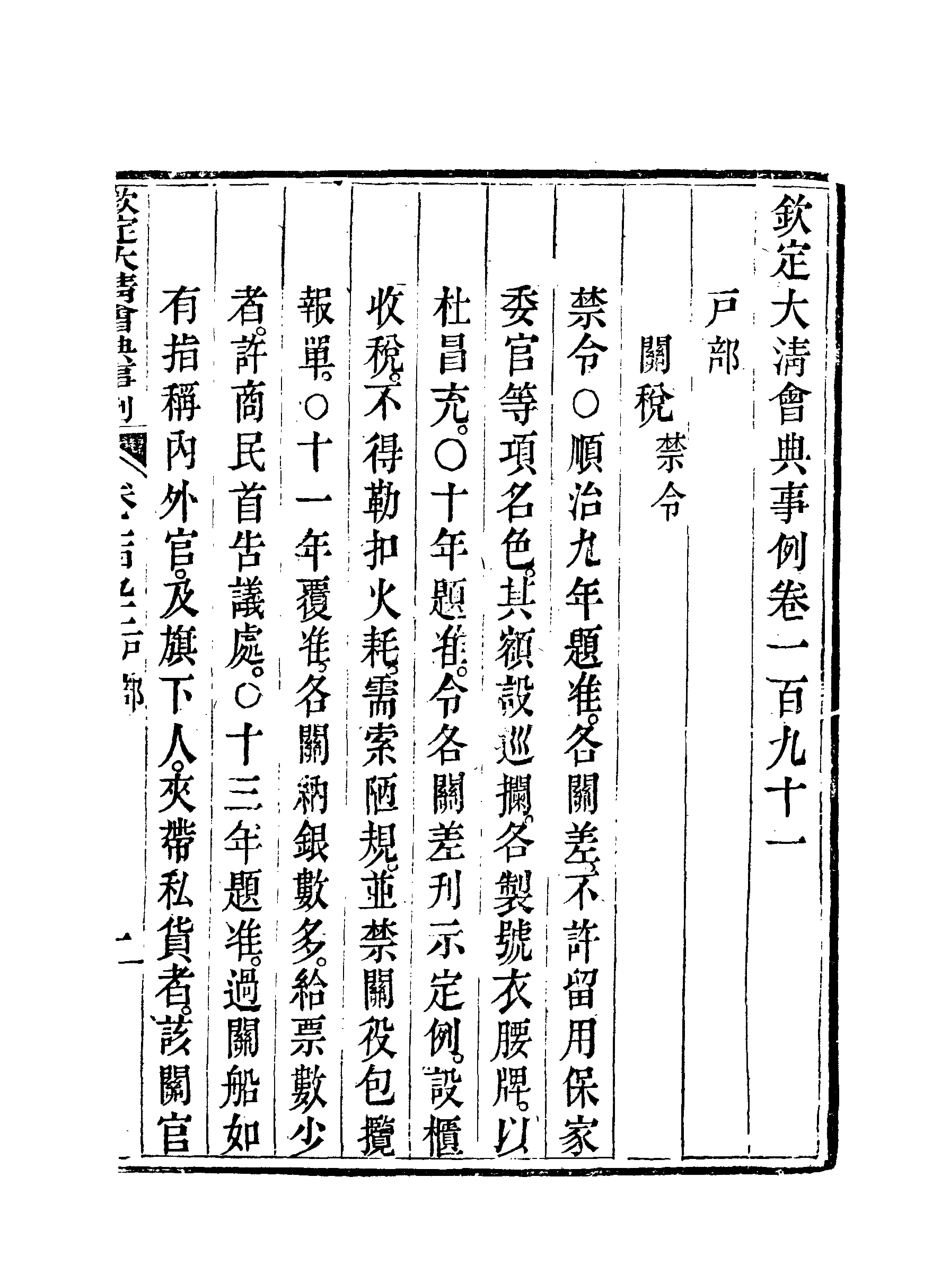 欽定大淸會典事例卷一百九十一
戸部
關稅禁令
禁令○順治九年題准。各關差、不許留用保家
委官等項名色。其額設巡攔。各製號衣腰牌。以
杜昌充。○十年題准。令各關差刊示定例。設櫃
收稅。不得勒扣火耗、需索陋規。並禁關役包攬
報單。○十一年覆准、各關納銀數多。給票數少
者。許商民首告議處。○十三年題准。過關船如
有指稱內外官。及旗下人。夾帶私貨者。該關官
欽定大淸會典事例 卷一百九十一戸部 一